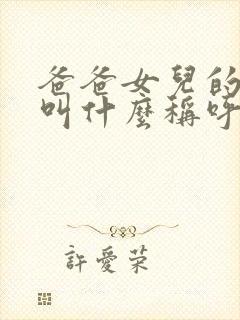 爸爸女兒的
叫什麼稱呼
許愛荣